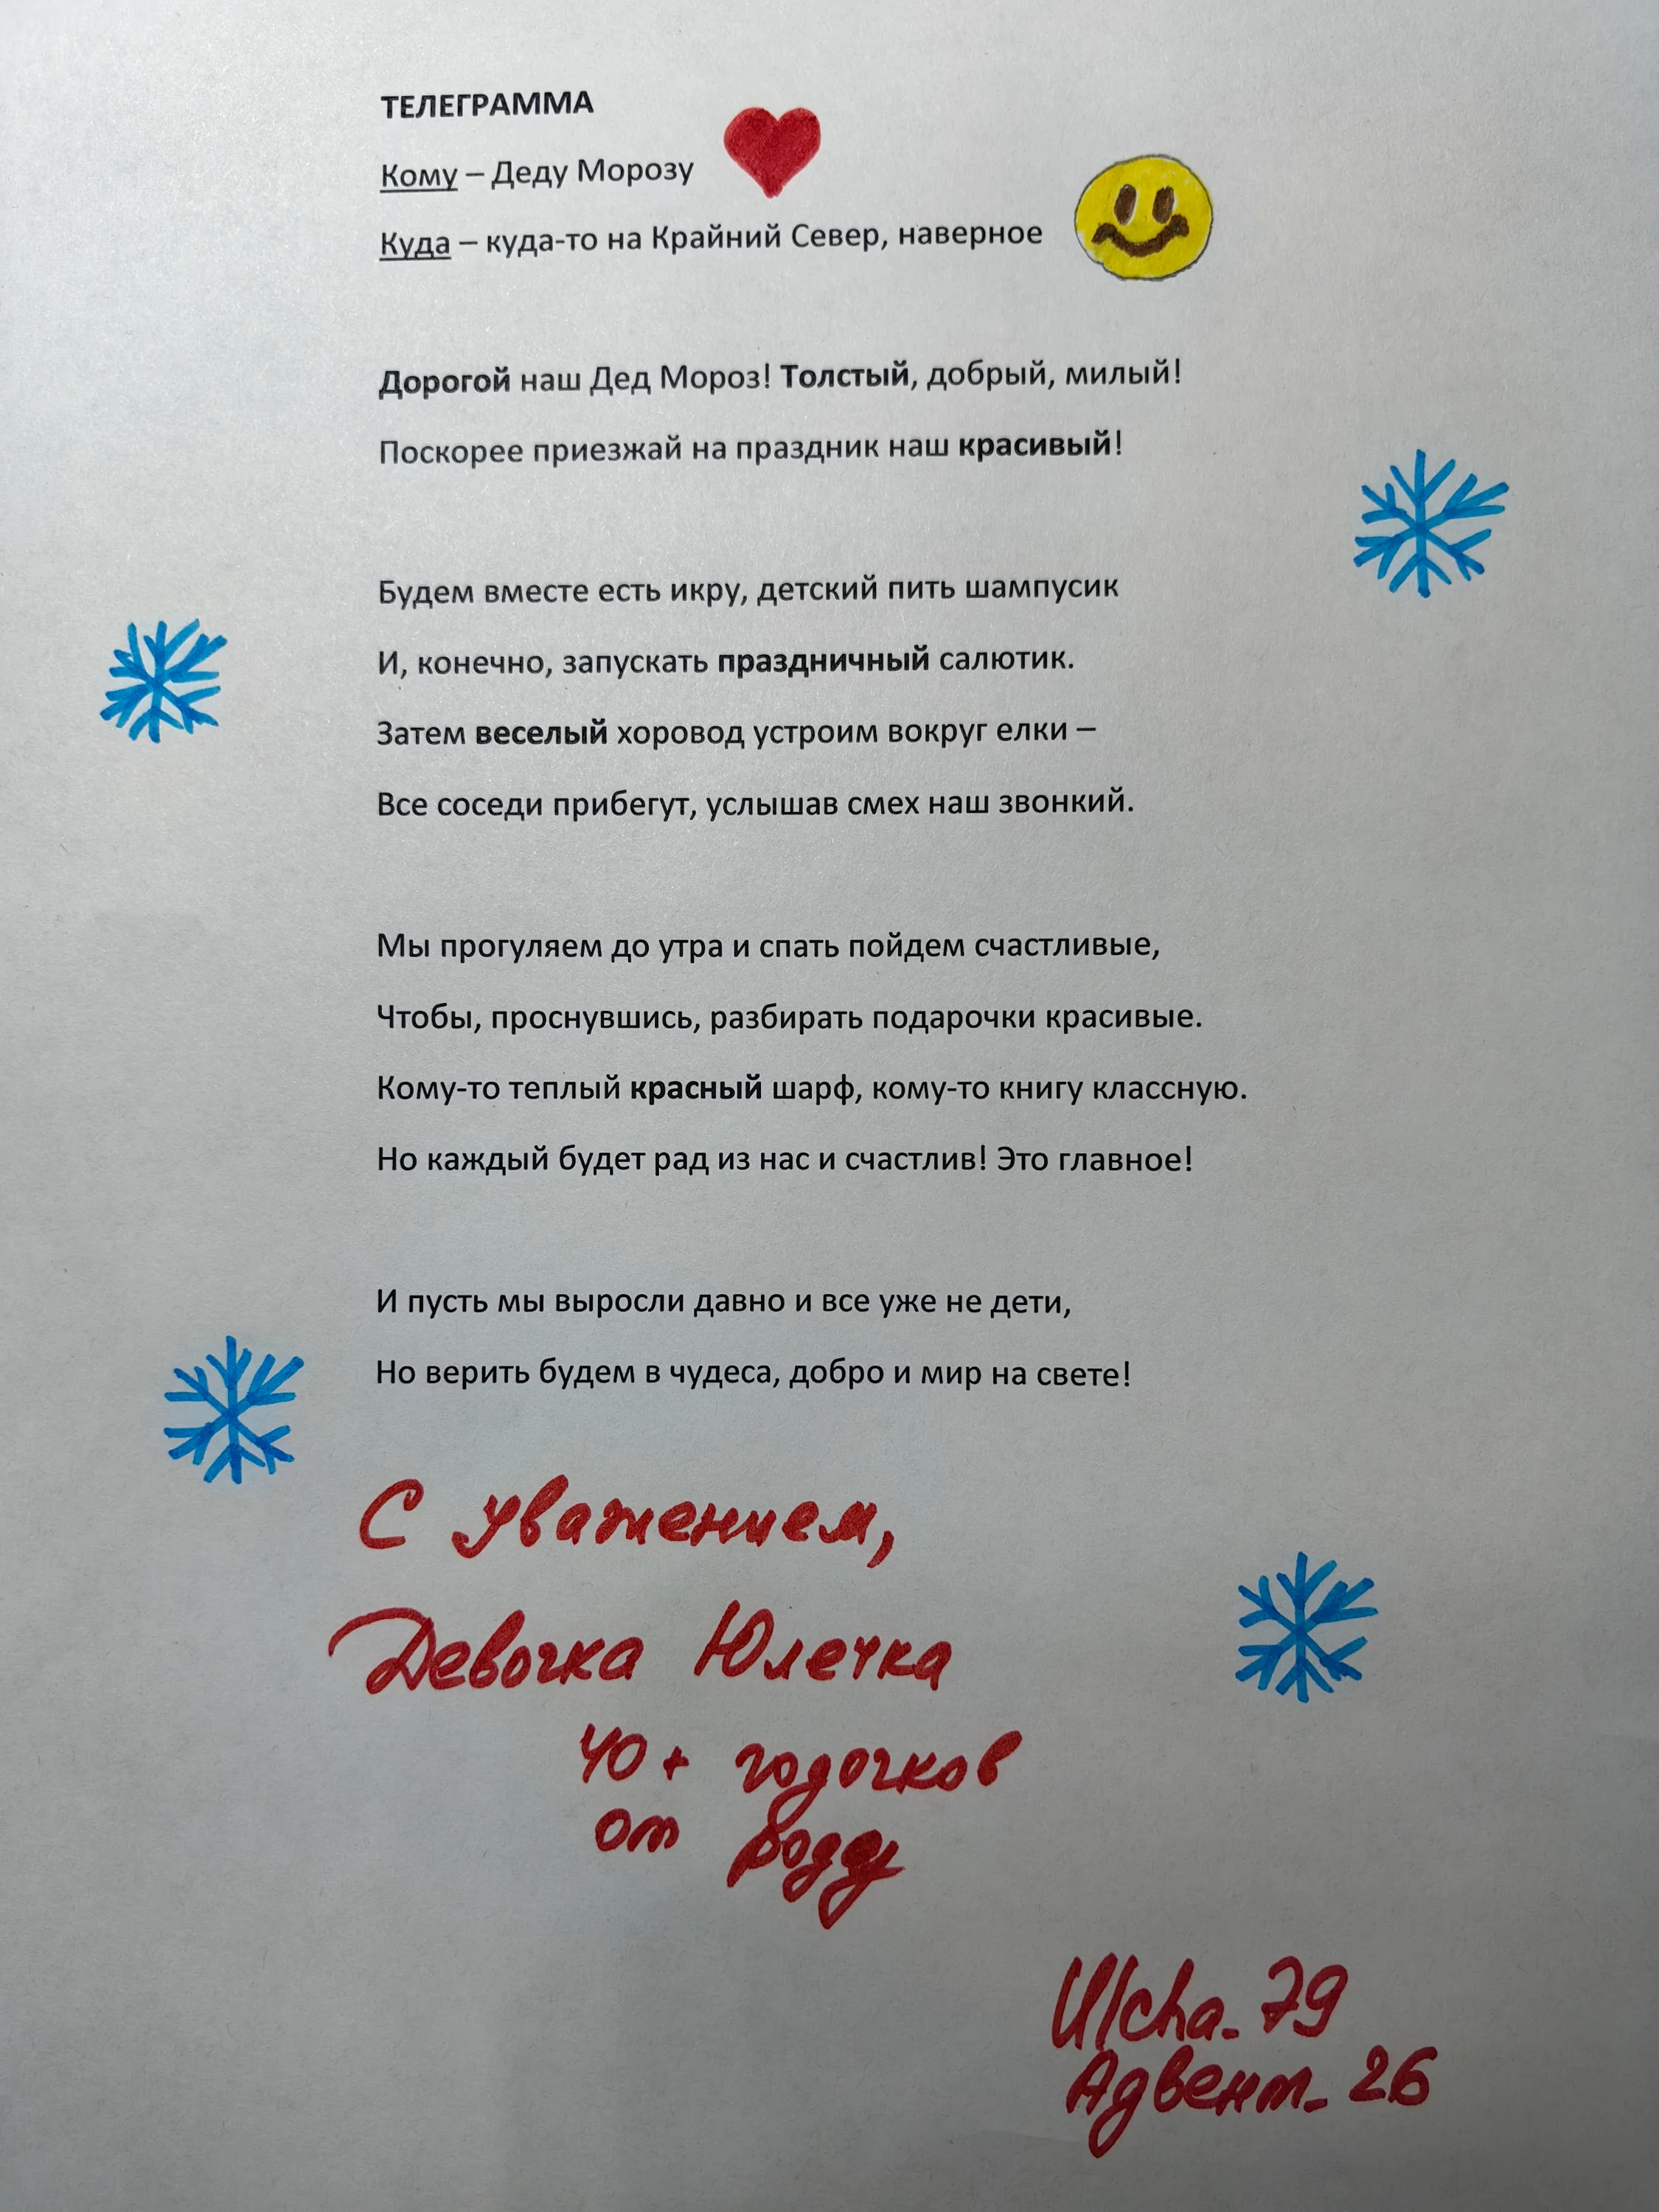 ТЕЛЕГРАММА
Кому – Деду Морозу
Куда – куда-то на Крайний Север, наверное
Дорогой наш Дед Мороз! Толстый, добрый, милый!
Поскорее приезжай на праздник наш красивый!
Будем вместе есть икру, детский пить шампусик
И, конечно, запускать праздничный салютик.
Затем веселый хоровод устроим вокруг елки –
Все соседи прибегут, услышав смех наш звонкий.
Мы прогуляем до утра и спать пойдем счастливые,
Чтобы, проснувшись, разбирать подарочки красивые.
Кому-то теплый красный шарф, кому-то книгу классную.
Но каждый будет рад из нас и счастлив! Это главное!
И пусть мы выросли давно и все уже не дети,
Но верить будем в чудеса, добро и мир на свете!
С уважением,
Девочка Юлечка
40+ годочков
от роду
Ulcha_79
Адвент_26